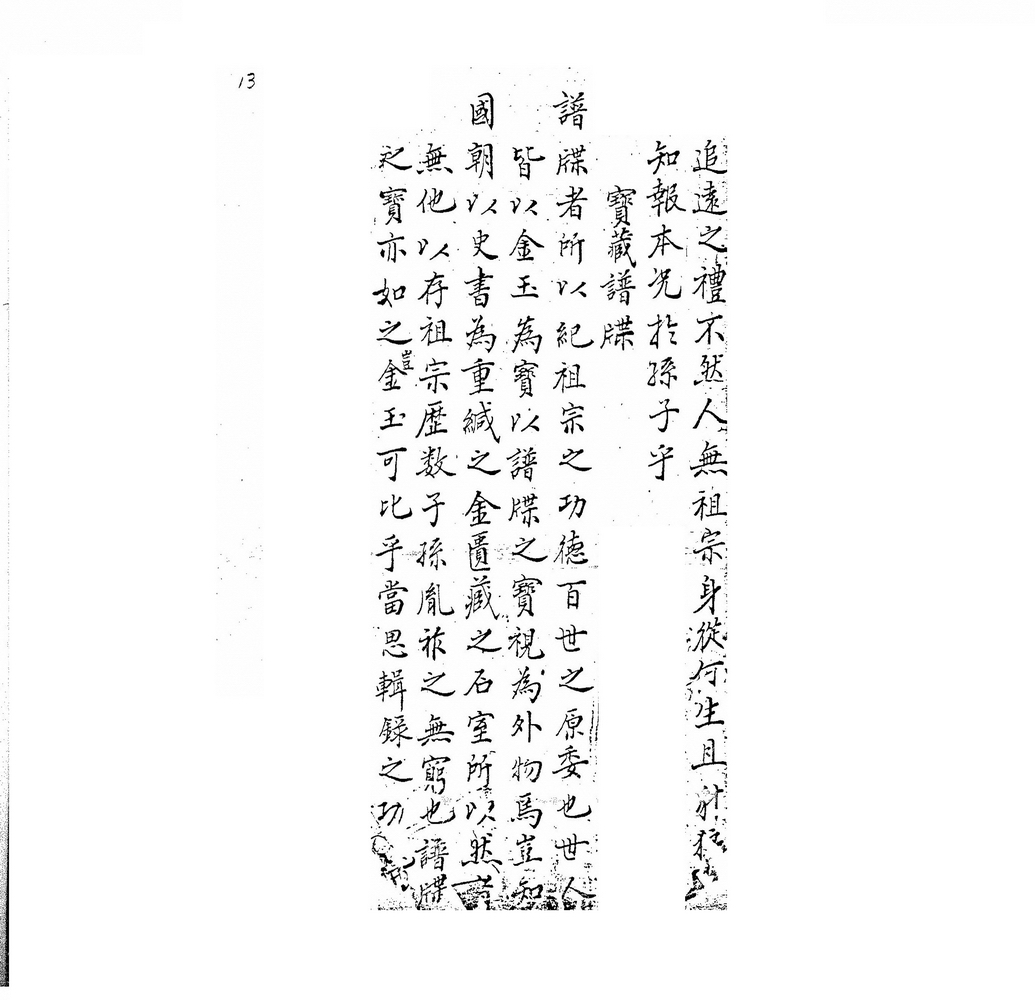 13
追遠之禮不然人無祖宗身從何生且豺狼
知報本况於孫子乎
寶藏譜牒
譜牒者所以紀祖宗之功德百世之原委也世人
皆以金玉為寶以譜牒之寶視為外物焉豈知
國朝以史書為重緘之金匱藏之石室所以然者
無他以存祖宗歷数子孫胤祚之無窮也譜牒
之寶亦如之豈金玉可比乎當思輯錄之功